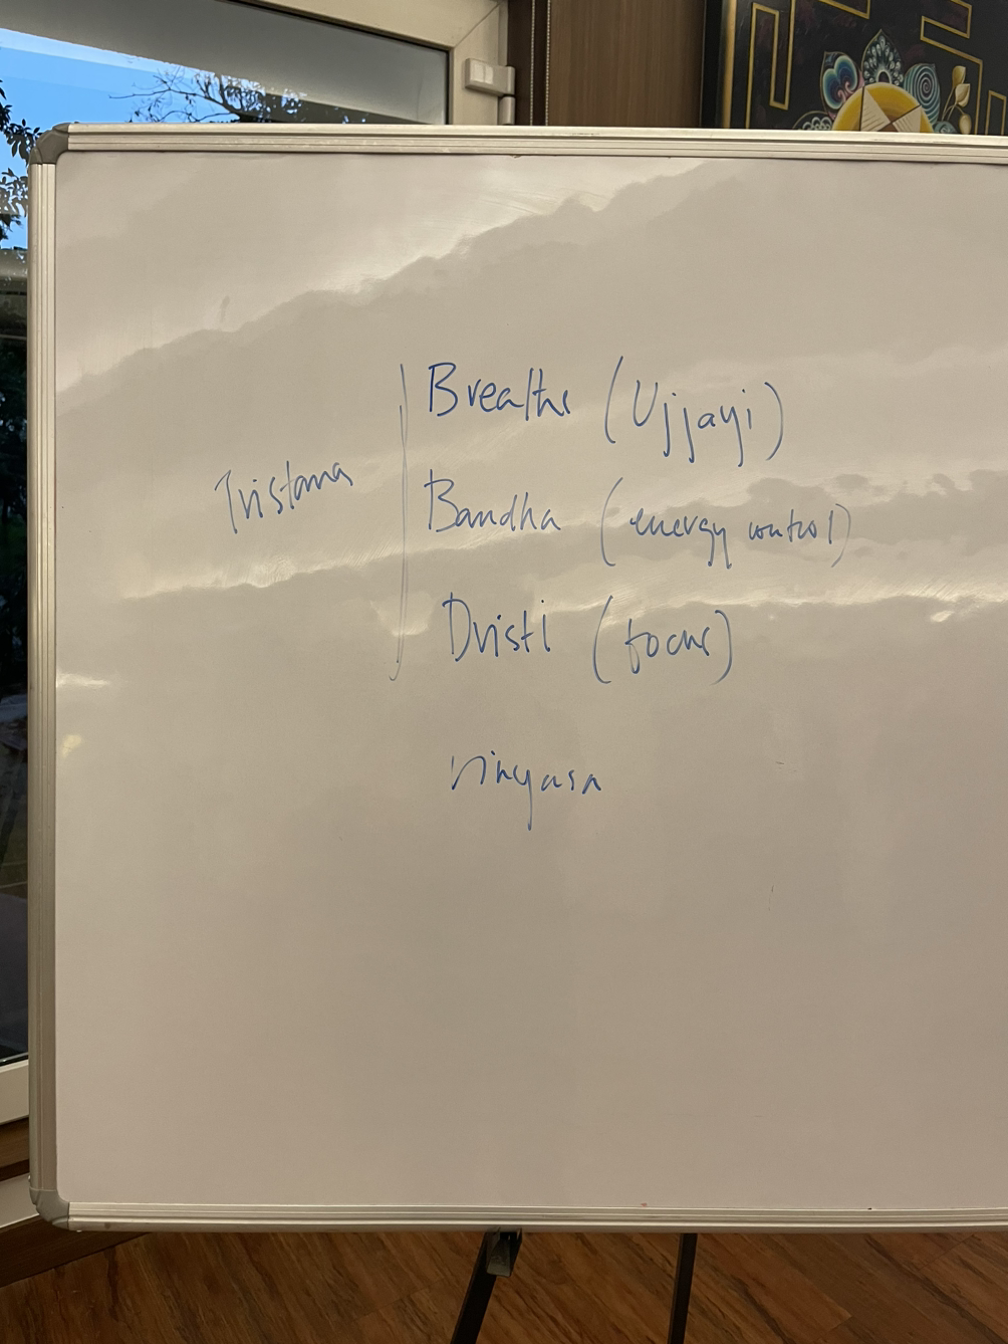 Breathe (Ujjayi)
Tristana
Bandha (energy control)
Dristi (focus)
Vinyasa